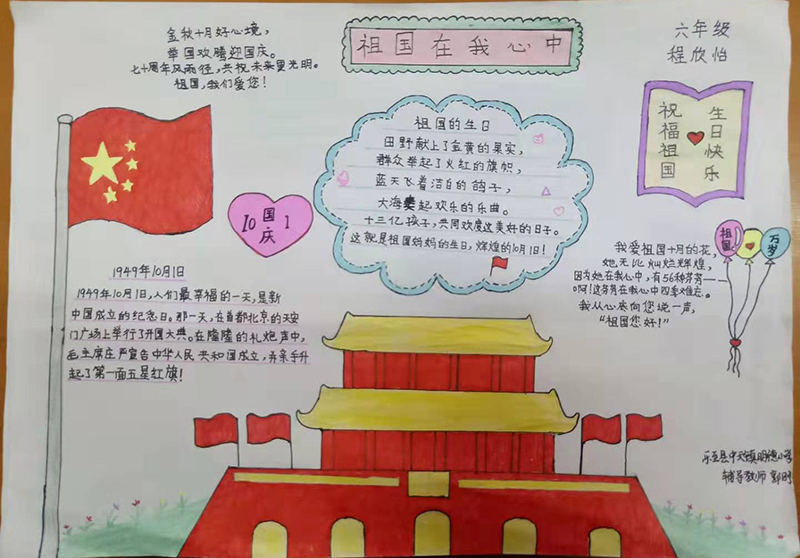 金秋十月好心境，
举国欢腾迎国庆。
七十周年风雨径，共祝未来里光明。
祖国，我们爱您！
祖国在我心中
六年级
程欣怡
祖国的生日
田野献上了金黄的果实，
群众举起了火红的旗帜，
蓝天飞着洁白的鸽子，
大海奏起欢乐的乐曲。
十三亿孩子，共同欢度这美好的日子。
这就是祖国妈妈的生日，辉煌的10月1日！
祝福祖国
生日快乐
国庆
10 1
祖国
万岁
1949年10月1日
1949年10月1日，人们最幸福的一天，是新
中国成立的纪念日。那一天，在首都北京的天安
门广场上举行了开国大典。在隆隆的礼炮声中，
毛主席庄严宣告中华人民共和国成立，并亲手升
起了第一面五星红旗！
我爱祖国十月的花，
她无比灿烂辉煌，
因为她在我心中，有56种芬芳——
啊！这芬芳在我心中四季难忘。
我从心底向您说一声，
“祖国您好！”
乐至县中天镇明德小学
辅导教师 郭